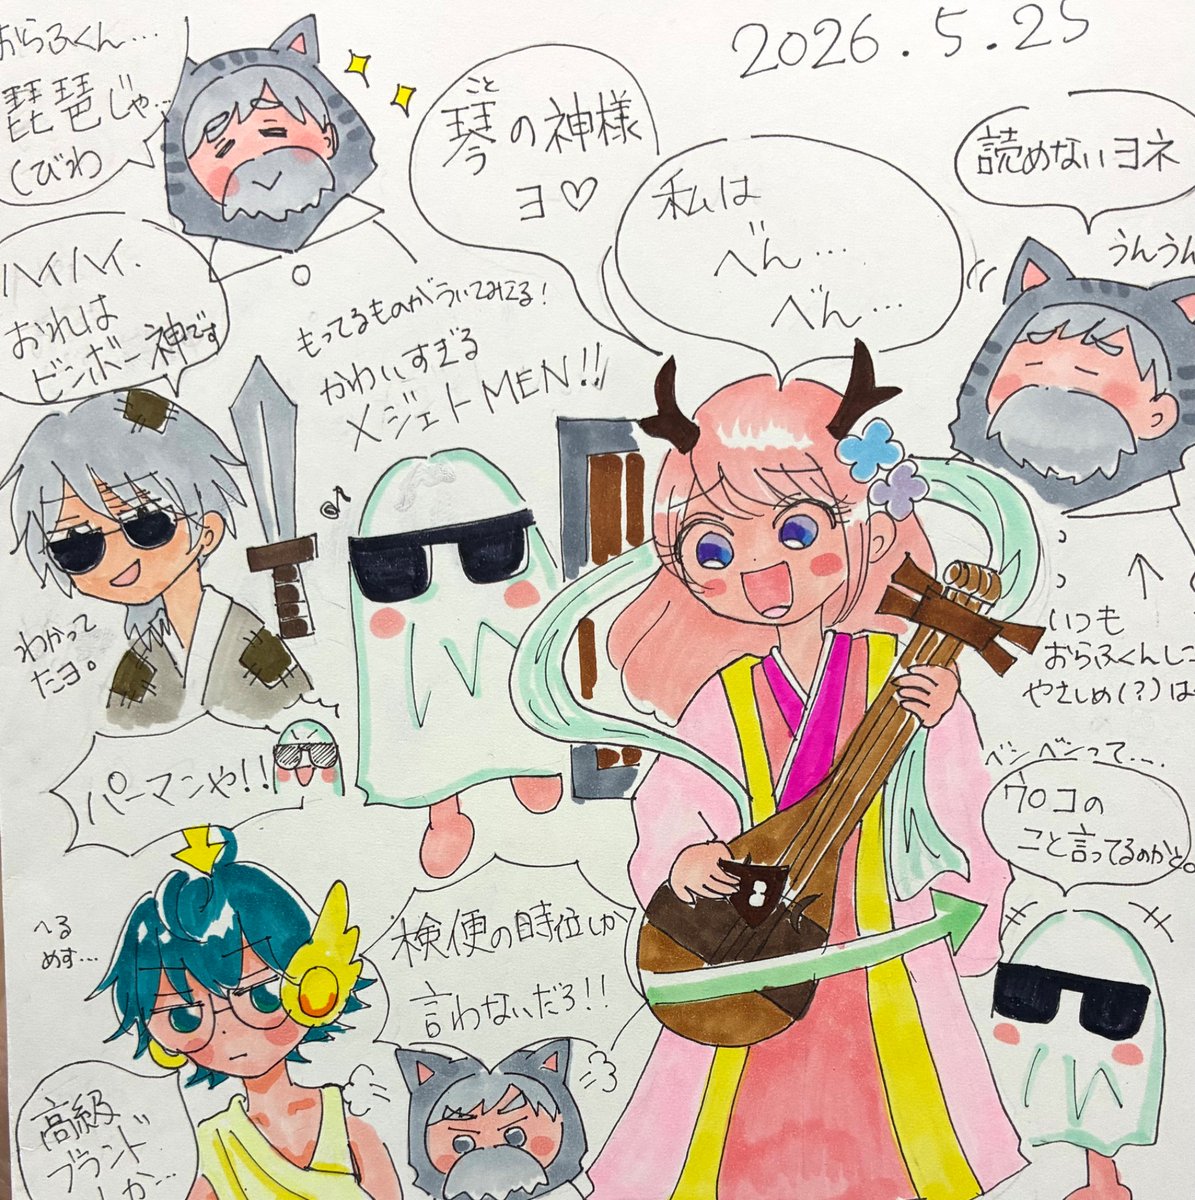 2026.5.25
おらふくん…
琵琶じゃ…
くびわ
こと
琴の神様
ヨ♡
私は
べん…
べん…
読めないヨネ
うんうん
ハイハイ.
おれは
ビンボー神です
もってるものがういてみえる!
かわいすぎる
メジェドMEN!!
わかって
たヨ。
パーマンや!!
いつも
おらふくんしこ
やさしめ(?)は
ベンベンって…
ウロコの
こと言ってるのかと。
へる
めす…
検便の時位しか
言わないだろ!!
高級
ブランド
しか…